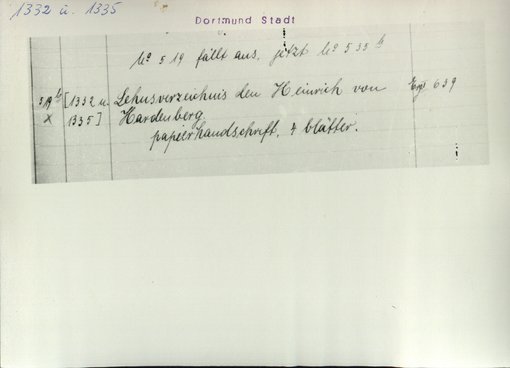 1332 u. 1335
Dortmund Stadt
No 519 fällt aus. jetzt No 535 b
519 b [1332 u. Lehnsverzeichnis den Heinrich von Erg 639
x 1335] Hardenberg
papierhandschrift, 4 blätter.